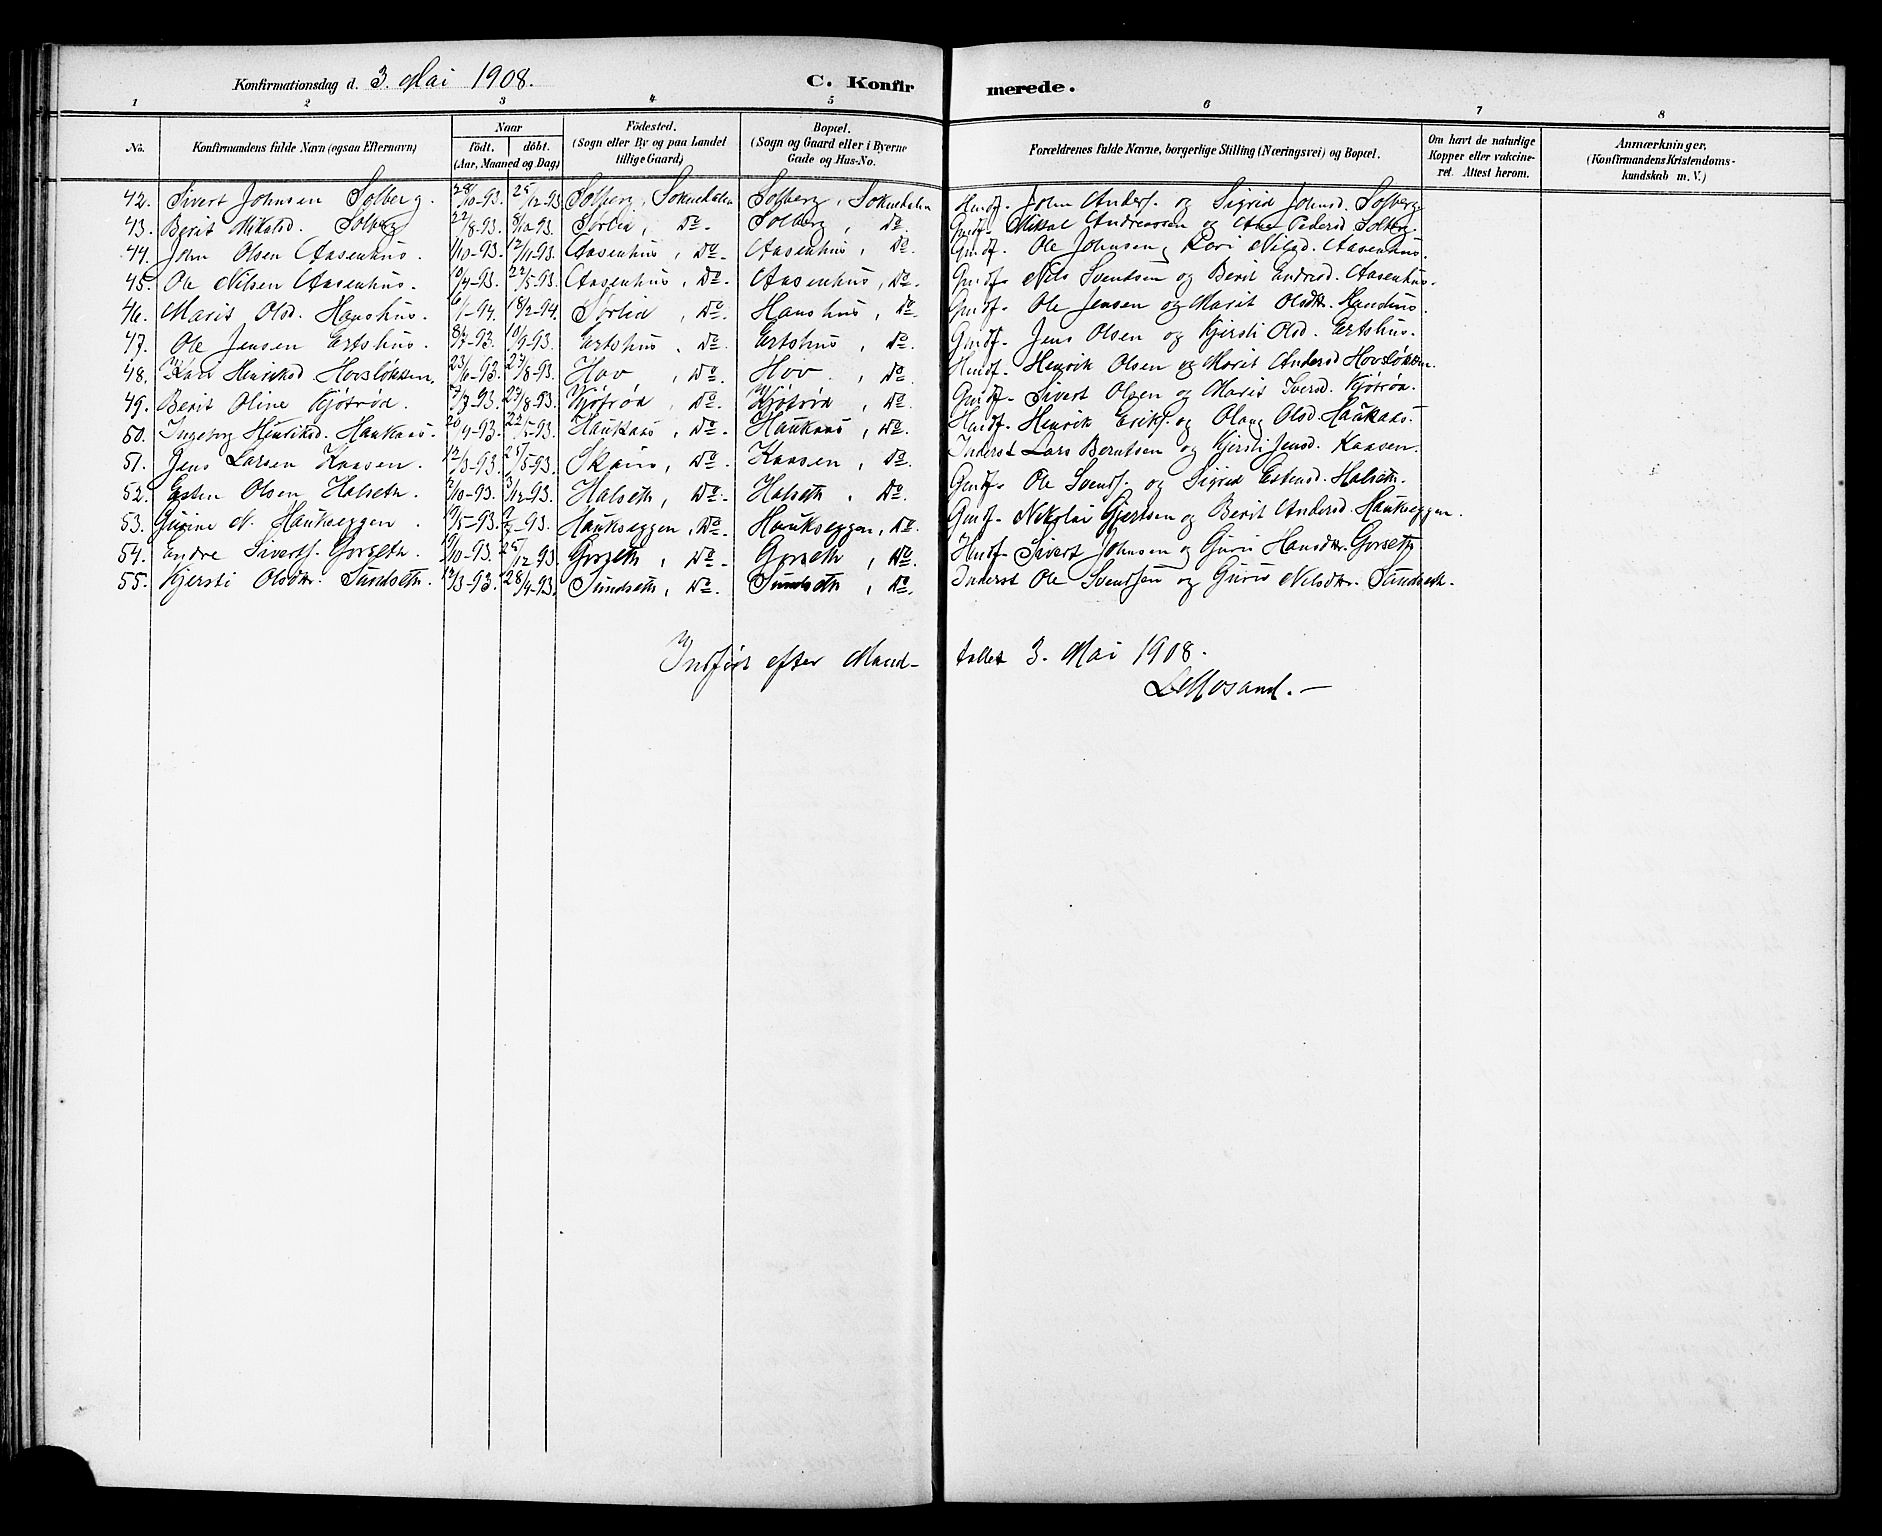 Konfirmationsdag d. 3. Mai 1908. C. Konfir merede.
1 2 3 4 5 6 7 8
No. Konfirmandens fulde Navn (ogsaa Efternavn) Naar Födt. döbt. (Aar, Maaned og Dag) Födested. (Sogn eller By og paa Landet tillige Gaard) Bopæl. (Sogn og Gaard eller i Byerne Gade og Hus-No. Forældrenes fulde Navne, borgerlige Stilling (Næringsvei) og Bopæl. Om havt de naturlige Kopper eller vakcineret. Attest herom. Anmærkninger, (Konfirmandens Kristendomskundskab m. V.)
42. Sivert Johnsen Solberg. 28/10-93. 25/12-93 Solberg, Soknedalen Solberg, Soknedalen Husf. John Anders. og Sigrid Johnsd. Solberg
43. Berit Mikalsd. Solberg 22/8-93. 8/10-93. Sørlia, do Solberg, do Gmdf. Mikal Andreassen og Ane Pedersd Solberg.
44. John Olsen Aasenhus. 1/10-93. 12/11-93. Aasenhus, do. Aasenhus, do Gmdf. Ole Johnsen og Kari Nilsd. Aasenhus.
45. Ole Nilsen Aasenhus. 10/4-93. 22/5-93. Aasenhus, do. Aasenhus, do. Gmdf. Nils Svendsen og Berit Endresd. Aasenhus.
46. Marit Olsd. Hanshus. 6/1-94. 18/2-94. Sørlia, do. Hanshus, do Gmdf. Ole Jensen og Marit Olsdtr. Hanshus.
47. Ole Jensen Ertshus. 8/7-93. 10/9-93. Ertshus, do Ertshus, do. Gmdf. Jens Olsen og Kjersti Olsd. Ertshus.
48. Kari Henriksd Hovsløkken. 23/6-93. 27/8-93. Hov, do Hov, do Husf. Henrik Olsen og Marit Andersd Hovsløkken
49. Berit Oline Kjøtrøa. 27/8-93. Kjøtrøa, do. Kjøtrøa, do. Gmdf. Sivert Olsen og Marit Iversd. Kjøtrøa.
50. Ingeborg Henriksd. Haukaas. 20/4-93. 22/5-93. Haukaas, do. Haukaas, do. Husf. Henrik Eriks. og Olaug Olsd. Haukaas.
51. Jens Larsen Kaasen. 12/3-93. 25/5-93. do. Kaasen, do. Inderst Lars Berntsen og Kjersti Jensd. Kaasen.
52. Esten Olsen Halseth. 2/10-93. 3/12-93. Halseth, do. Halseth, do. Gmdf. Ole Svends. og Sigrid Estensd. Halseth.
53. Gurine N. Haukseggen. 10/5-93. Haukseggen, do. Haukseggen, do. Gmdf. Nikolai Gjertsen og Berit Andersd. Haukseggen.
54. Endre Siverts. Gorseth. 19/10-93. 25/12 93. Gorseth, do. Gorseth, do. Husf. Sivert Johnsen og Guri Hansdtr. Gorseth
55. Kjersti Olsdtr. Sundseth. 12/3-93. 28/4-93. Sundseth, do. Sundseth, do. Inderst Ole Svendsen og Guru Nilsdtr. Sundseth.
Indført efter Mand- tallet 3. Mai 1908.
Mosand.